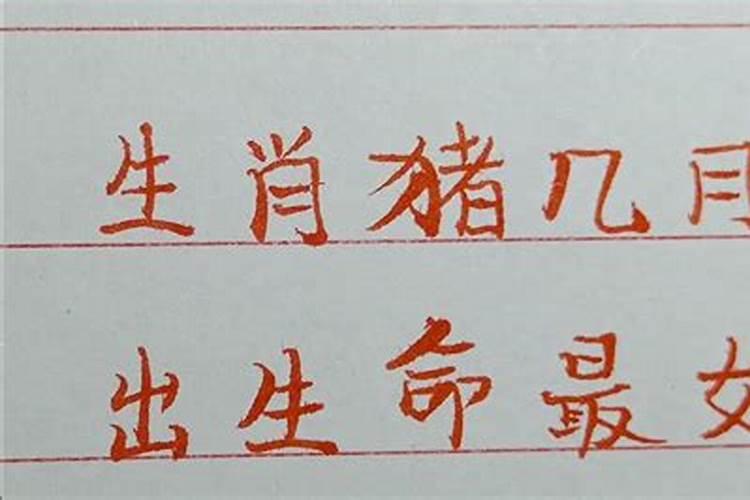 生肖猪几月
出生命最